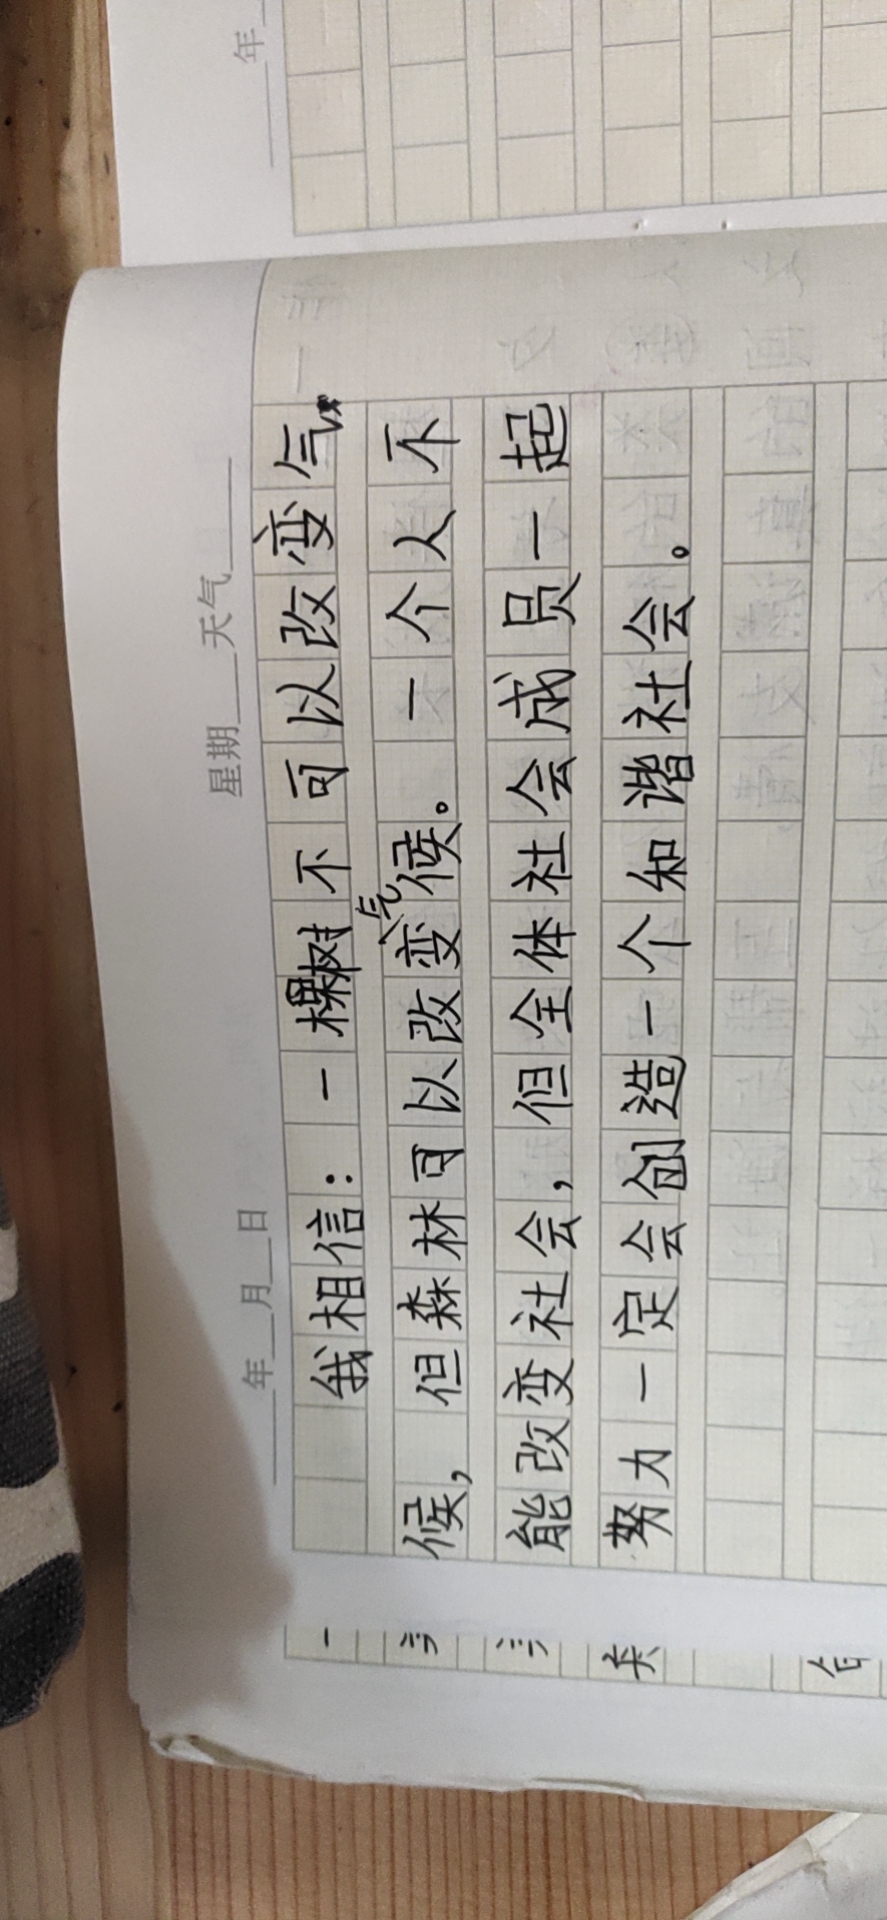 年
年 月 日 星期 天气
我相信：一棵树不可以改变气
候，但森林可以改变气候。一个人不
能改变社会，但全体社会成员一起
努力一定会创造一个和谐社会。